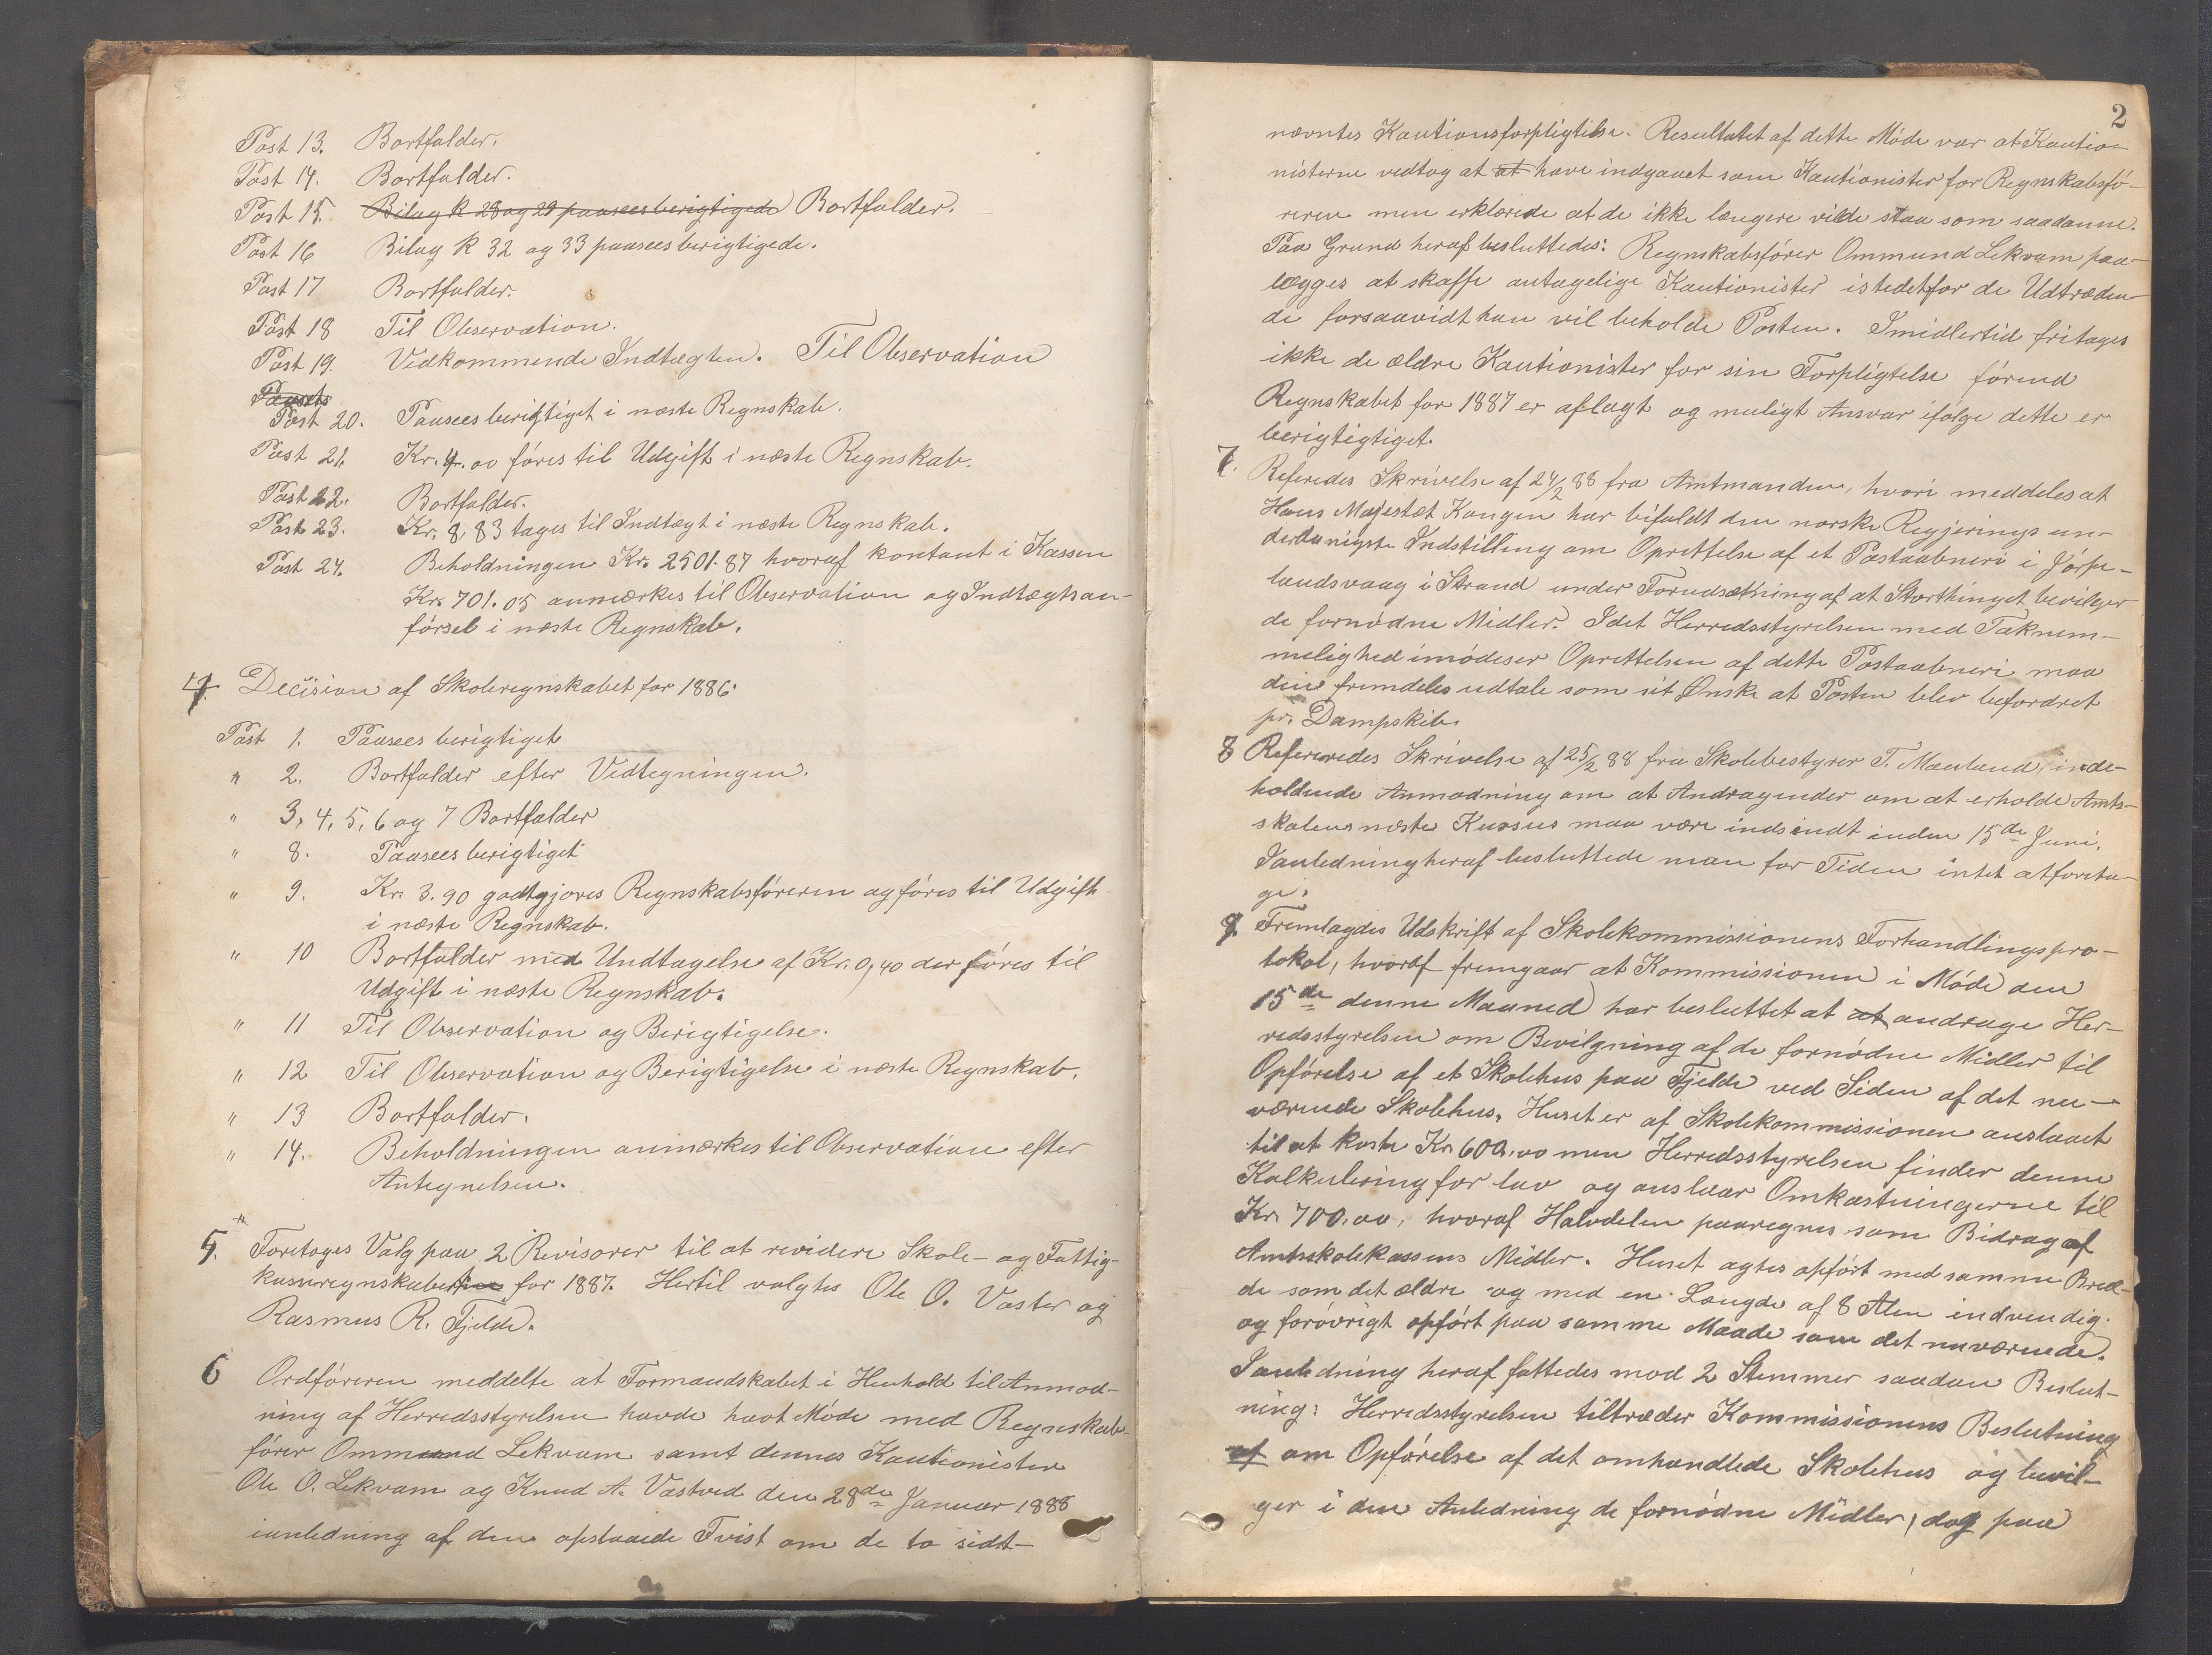 Post 13. Bortfalder.
Post 14. Bortfalder.
Post 15. Bilag k 28 og 29 paasees berigtigede Bortfalder.
Post 16 Bilag k 32 og 33 paasees berigtigede.
Post 17 Bortfalder.
Post 18 Til Observation.
Post 19. Vedkommende Indtægten. Til Observation
Post 20. Paasees berigtiget i næste Regnskab.
Post 21. Kr. 4.00 føres til Udgift i næste Regnskab.
Post 22. Bortfalder.
Post 23. Kr. 8,83 tages til Indtægt i næste Regnskab.
Post 24. Beholdningen Kr. 2501.87 hvoraf kontant i Kassen
Kr. 701.05 anmærkes til Observation og Indtægtsan-
førsel i næste Regnskab.
4. Decision af Skoleregnskabet for 1886.
Post 1. Paasees berigtiget
" 2. Bortfalder efter Vedtegningen.
" 3, 4, 5, 6 og 7 Bortfalder
" 8. Paasees berigtiget
" 9. Kr. 3.90 godtgjøres Regnskabsføreren og føres til Udgift
i næste Regnskab.
" 10 Bortfalder med Undtagelse af Kr. 0,40 der føres til
Udgift i næste Regnskab.
" 11 Til Observation og Berigtigelse.
" 12 Til Observation og Berigtigelse i næste Regnskab.
" 13 Bortfalder.
" 14. Beholdningen anmærkes til Observation efter
Antegnelsen.
5. Foretoges Valg paa 2 Revisorer til at revidere Skole- og Fattig-
kasseregnskaberne for 1887. Hertil valgtes Ole O. Vaster og
Rasmus R. Fjelde.
6 Ordføreren meddelte at Formandskabet i Henhold til Anmod-
ning af Herredsstyrelsen havde havt Møde med Regnskabs-
fører Ommund Lekvam samt dennes Kautionister
Ole O. Lekvam og Knud A. Vastved den 28de Januar 1888
ianledning af den opstaaede Tvist om de to sidst-
2
nævntes Kautionsforpligtelse. Resultatet af dette Møde var at Kautio-
nisterne vedtog at at have indgaaet som Kautionister for Regnskabsfø-
reren men erklærede at de ikke længere vilde staa som saadanne.
Paa Grund heraf besluttedes: Regnskabsfører Ommund Lekvam paa-
lægges at skaffe antagelige Kautionister istedetfor de Udtræden-
de forsaavidt han vil beholde Posten. Imidlertid fritages
ikke de ældre Kautionister for sin Forpligtelse førend
Regnskabet for 1887 er aflagt og muligt Ansvar ifølge dette er
berigtigtiget.
7. Referedes Skrivelse af 24/2 88 fra Amtmanden, hvori meddeles at
Hans Majestæt Kongen har bifaldt den norske Regjerings un-
derdanigste Indstilling om Oprettelse af et Postaabneri i Jørpe-
landsvaag i Strand under Forudsætning af at Storthinget bevilger
de fornødne Midler. Idet Herredsstyrelsen med Taknem-
melighed imødeser Oprettelsen af dette Postaabneri maa
den fremdeles udtale som sit Ønske at Posten blev befordret
pr. Dampskib.
8 Refereredes Skrivelse af 25/2 88 fra Skolebestyrer T. Mæuland, inde-
holdende Anmodning om at Andragender om at erholde Amts-
skolens næste Kursus maa være indsendt inden 15de Juni.
Ianledning heraf besluttede man for Tiden intet at foreta-
ge.
9. Fremlagdes Udskrift af Skolekommissionens Forhandlingspro-
tokol, hvoraf fremgaar at Kommissionen i Møde den
15de denne Maaned har besluttet at at andrage Her-
redsstyrelsen om Bevilgning af de fornødne Midler til
Opførelse af et Skolehus paa Fjelde ved Siden af det nu-
værende Skolehus. Huset er af Skolekommissionen anslaaet
til at koste Kr 600.00 men Herredsstyrelsen finder denne
Kalkulering for lav og anslaar Omkostningerne til
Kr. 700.00, hvoraf Halvdelen paaregnes som Bidrag af
Amtsskolekassens Midler. Huset agtes opført med samme Bred-
de som det ældre og med en Længde af 8 Alen indvendig
og forøvrigt opført paa samme Maade som det nuværende.
Ianledning heraf fattedes mod 2 Stemmer saadan Beslut-
ning: Herredsstyrelsen tiltræder Kommissionens Beslutning
af om Opførelse af det omhandlede Skolehus og bevil-
ger i den Anledning de fornødne Midler, dog paa